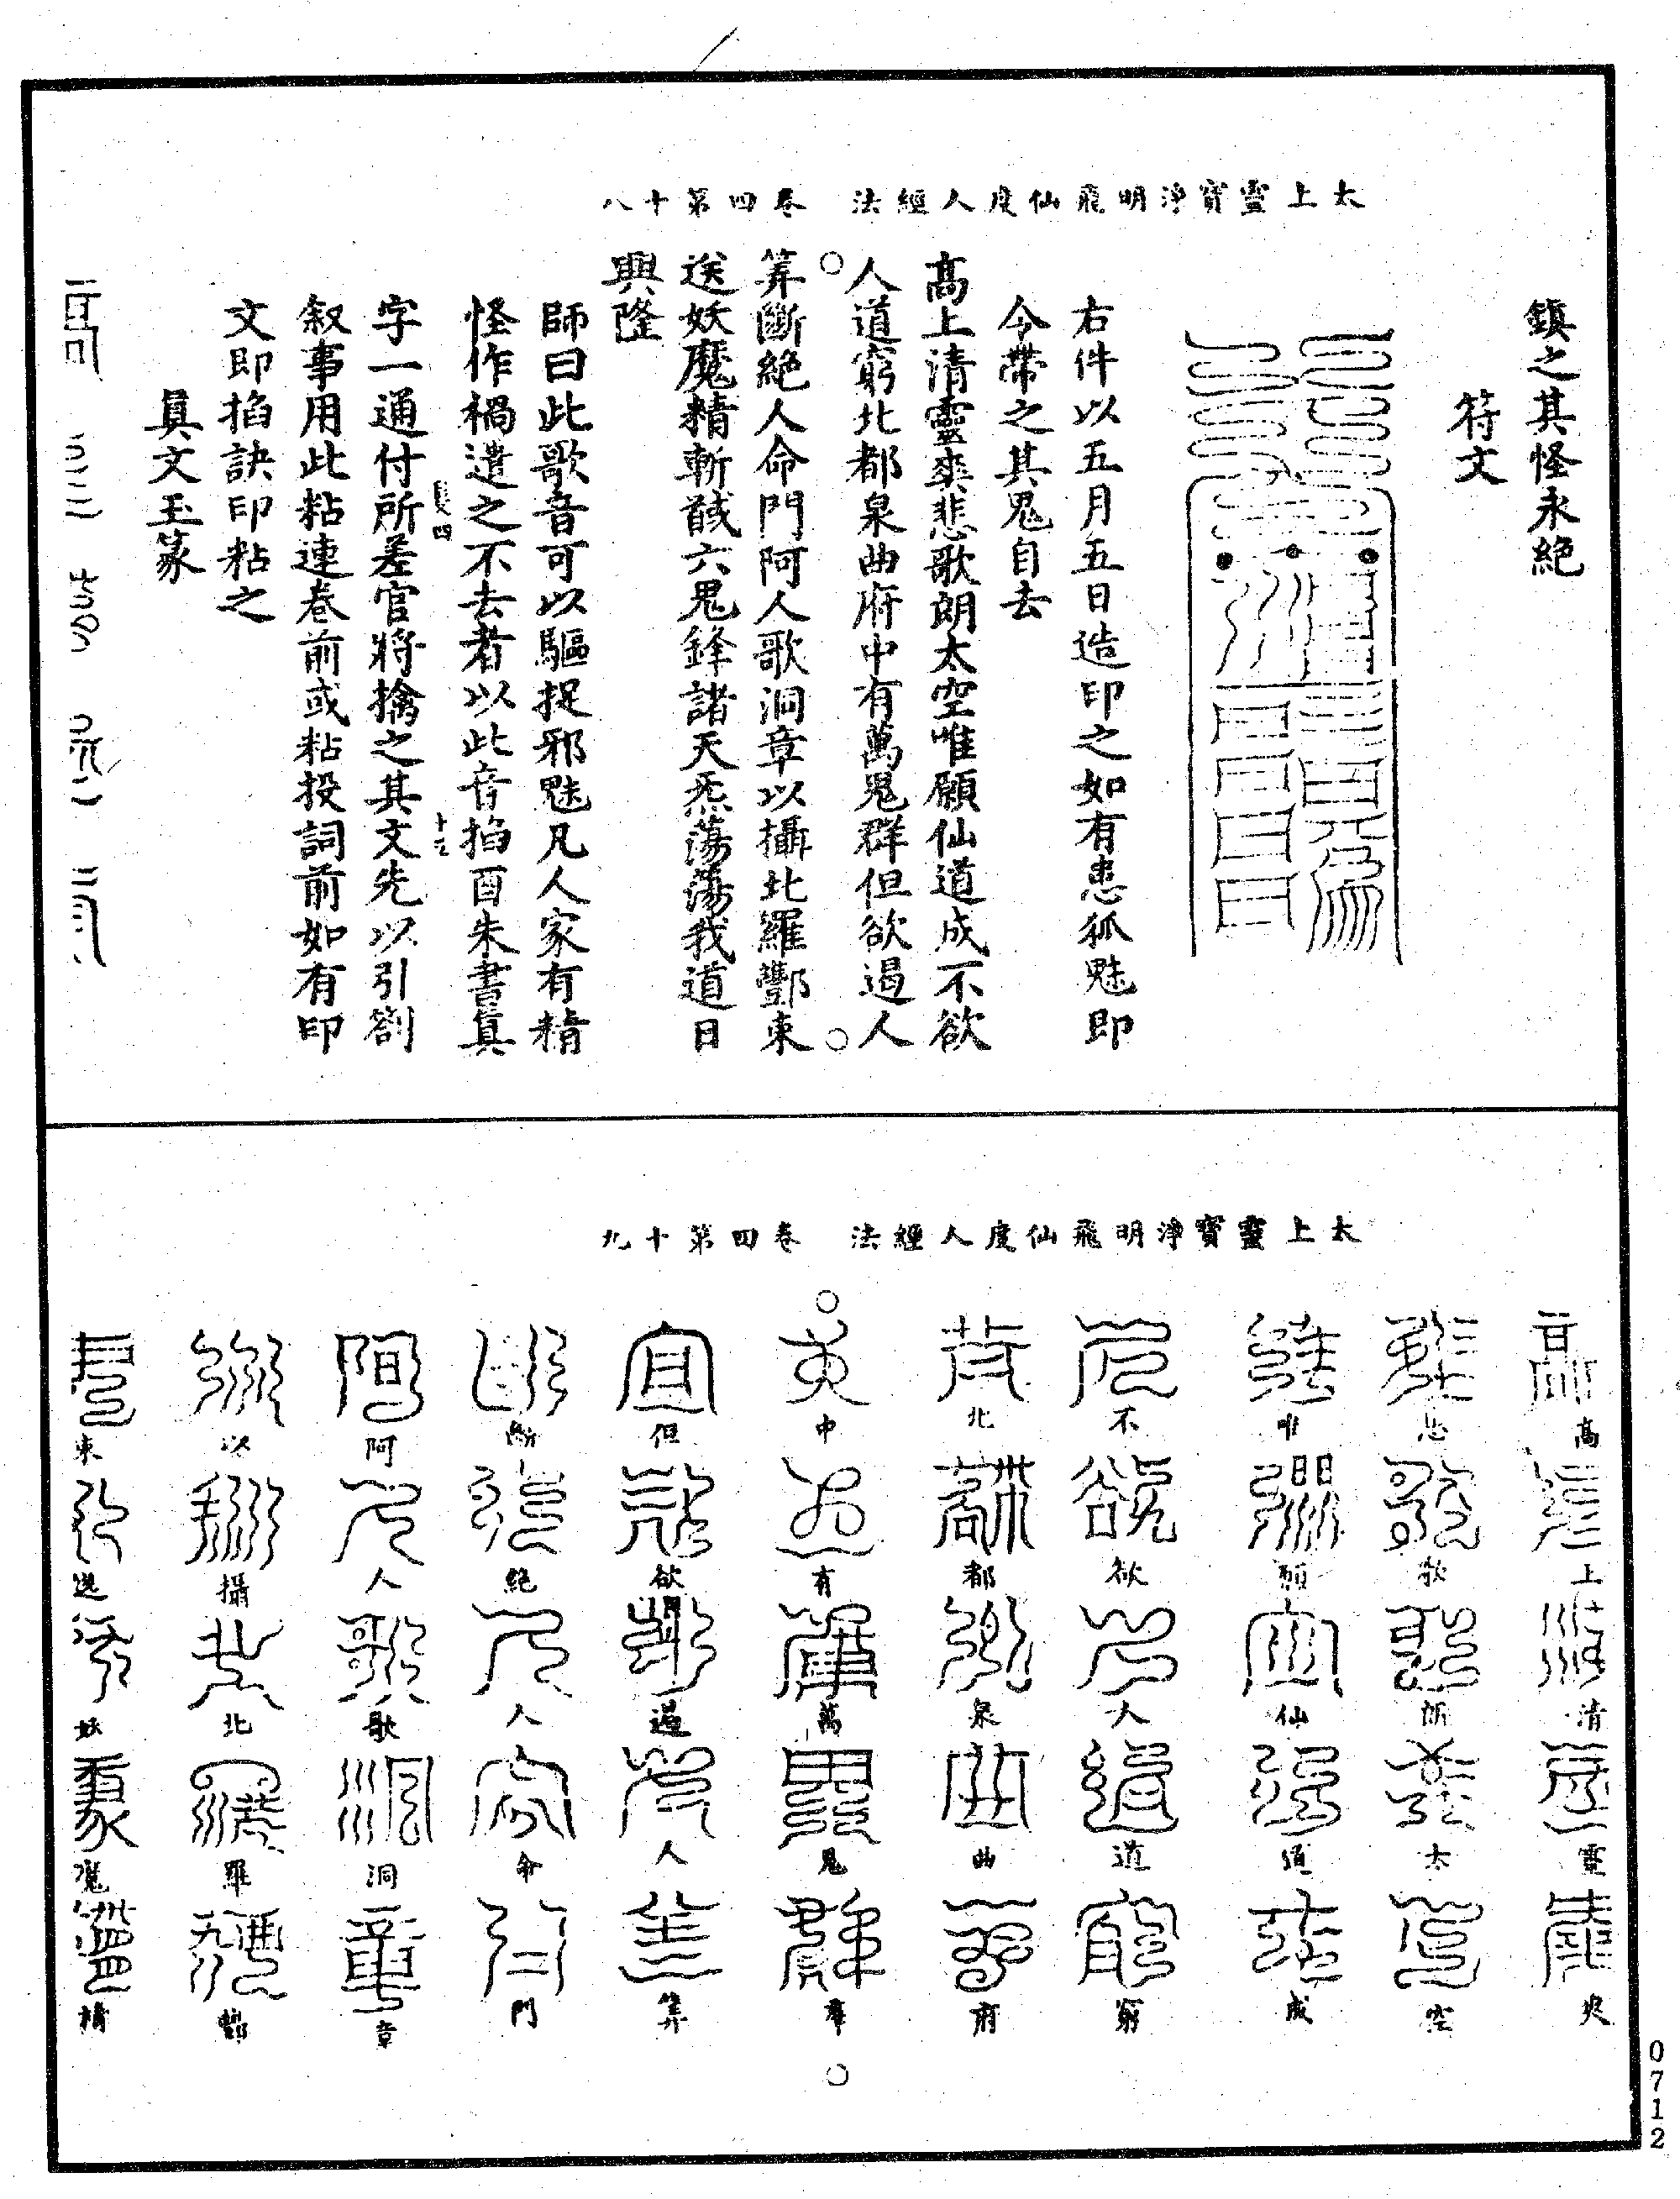 太上靈寳淨明飛仙度人經法　卷四第十八
鎮之其怪永絕
符文
右件以五月五日造印之如有患狐魅即
令帶之其鬼自去
髙上清靈爽悲歌朗太空唯願仙道成不欲
人道窮北都泉曲府中有萬鬼群但欲遏人
筭斷絕人命門阿人歌洞章以攝北羅酆束
送妖魔精斬馘六鬼鋒諸天炁蕩蕩我道日
興隆
師曰此歌音可以驅捉邪魅凡人家有精
怪作禍遣之不去者以此音掐酉朱書真
字一通付所差官將擒之其文先以引劄
叙事用此粘連卷前或粘投詞前如有印
文即掐訣印粘之
真文玉篆
太上靈寳淨明飛仙度人經法　卷四第十九
髙上清靈爽
悲歌朗太空
唯願仙道成
不欲人道窮
北都泉曲府
中有萬鬼羣
但欲遏人筭
斷絕人命門
阿人歌洞章
以攝北羅酆
束送妖魔精
0712